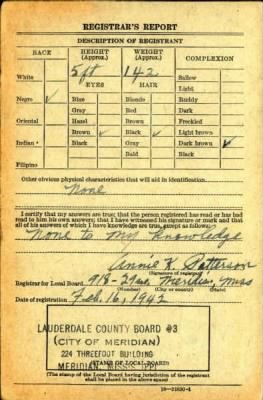 REGISTRAR'S REPORT
DESCRIPTION OF REGISTRANT
RACE HEIGHT (Approx.) WEIGHT (Approx.) COMPLEXION
5 ft 142
White EYES HAIR Sallow
Light
Negro ✓ Blue Blonde Ruddy
Gray Red Dark
Oriental Hazel Brown Freckled
Brown ✓ Black ✓ Light brown
Indian Black Gray Dark brown ✓
Bald Black
Filipino
Other obvious physical characteristics that will aid in identification
None
I certify that my answers are true; that the person registered has read or has had
read to him his own answers; that I have witnessed his signature or mark and that
all of his answers of which I have knowledge are true, except as follows:
None to my knowledge
Annie K. Patterson
(Signature of registrar)
Registrar for Local Board Meridian, Miss
(Number) (City or county) (State)
Date of registration Feb. 16, 1942
LAUDERDALE COUNTY BOARD #3
(CITY OF MERIDIAN)
224 THREEFOOT BUILDING
MERIDIAN, MISSISSIPPI
(STAMP OF LOCAL BOARD)
(The stamp of the Local Board having jurisdiction of the registrant
shall be placed in the above space)